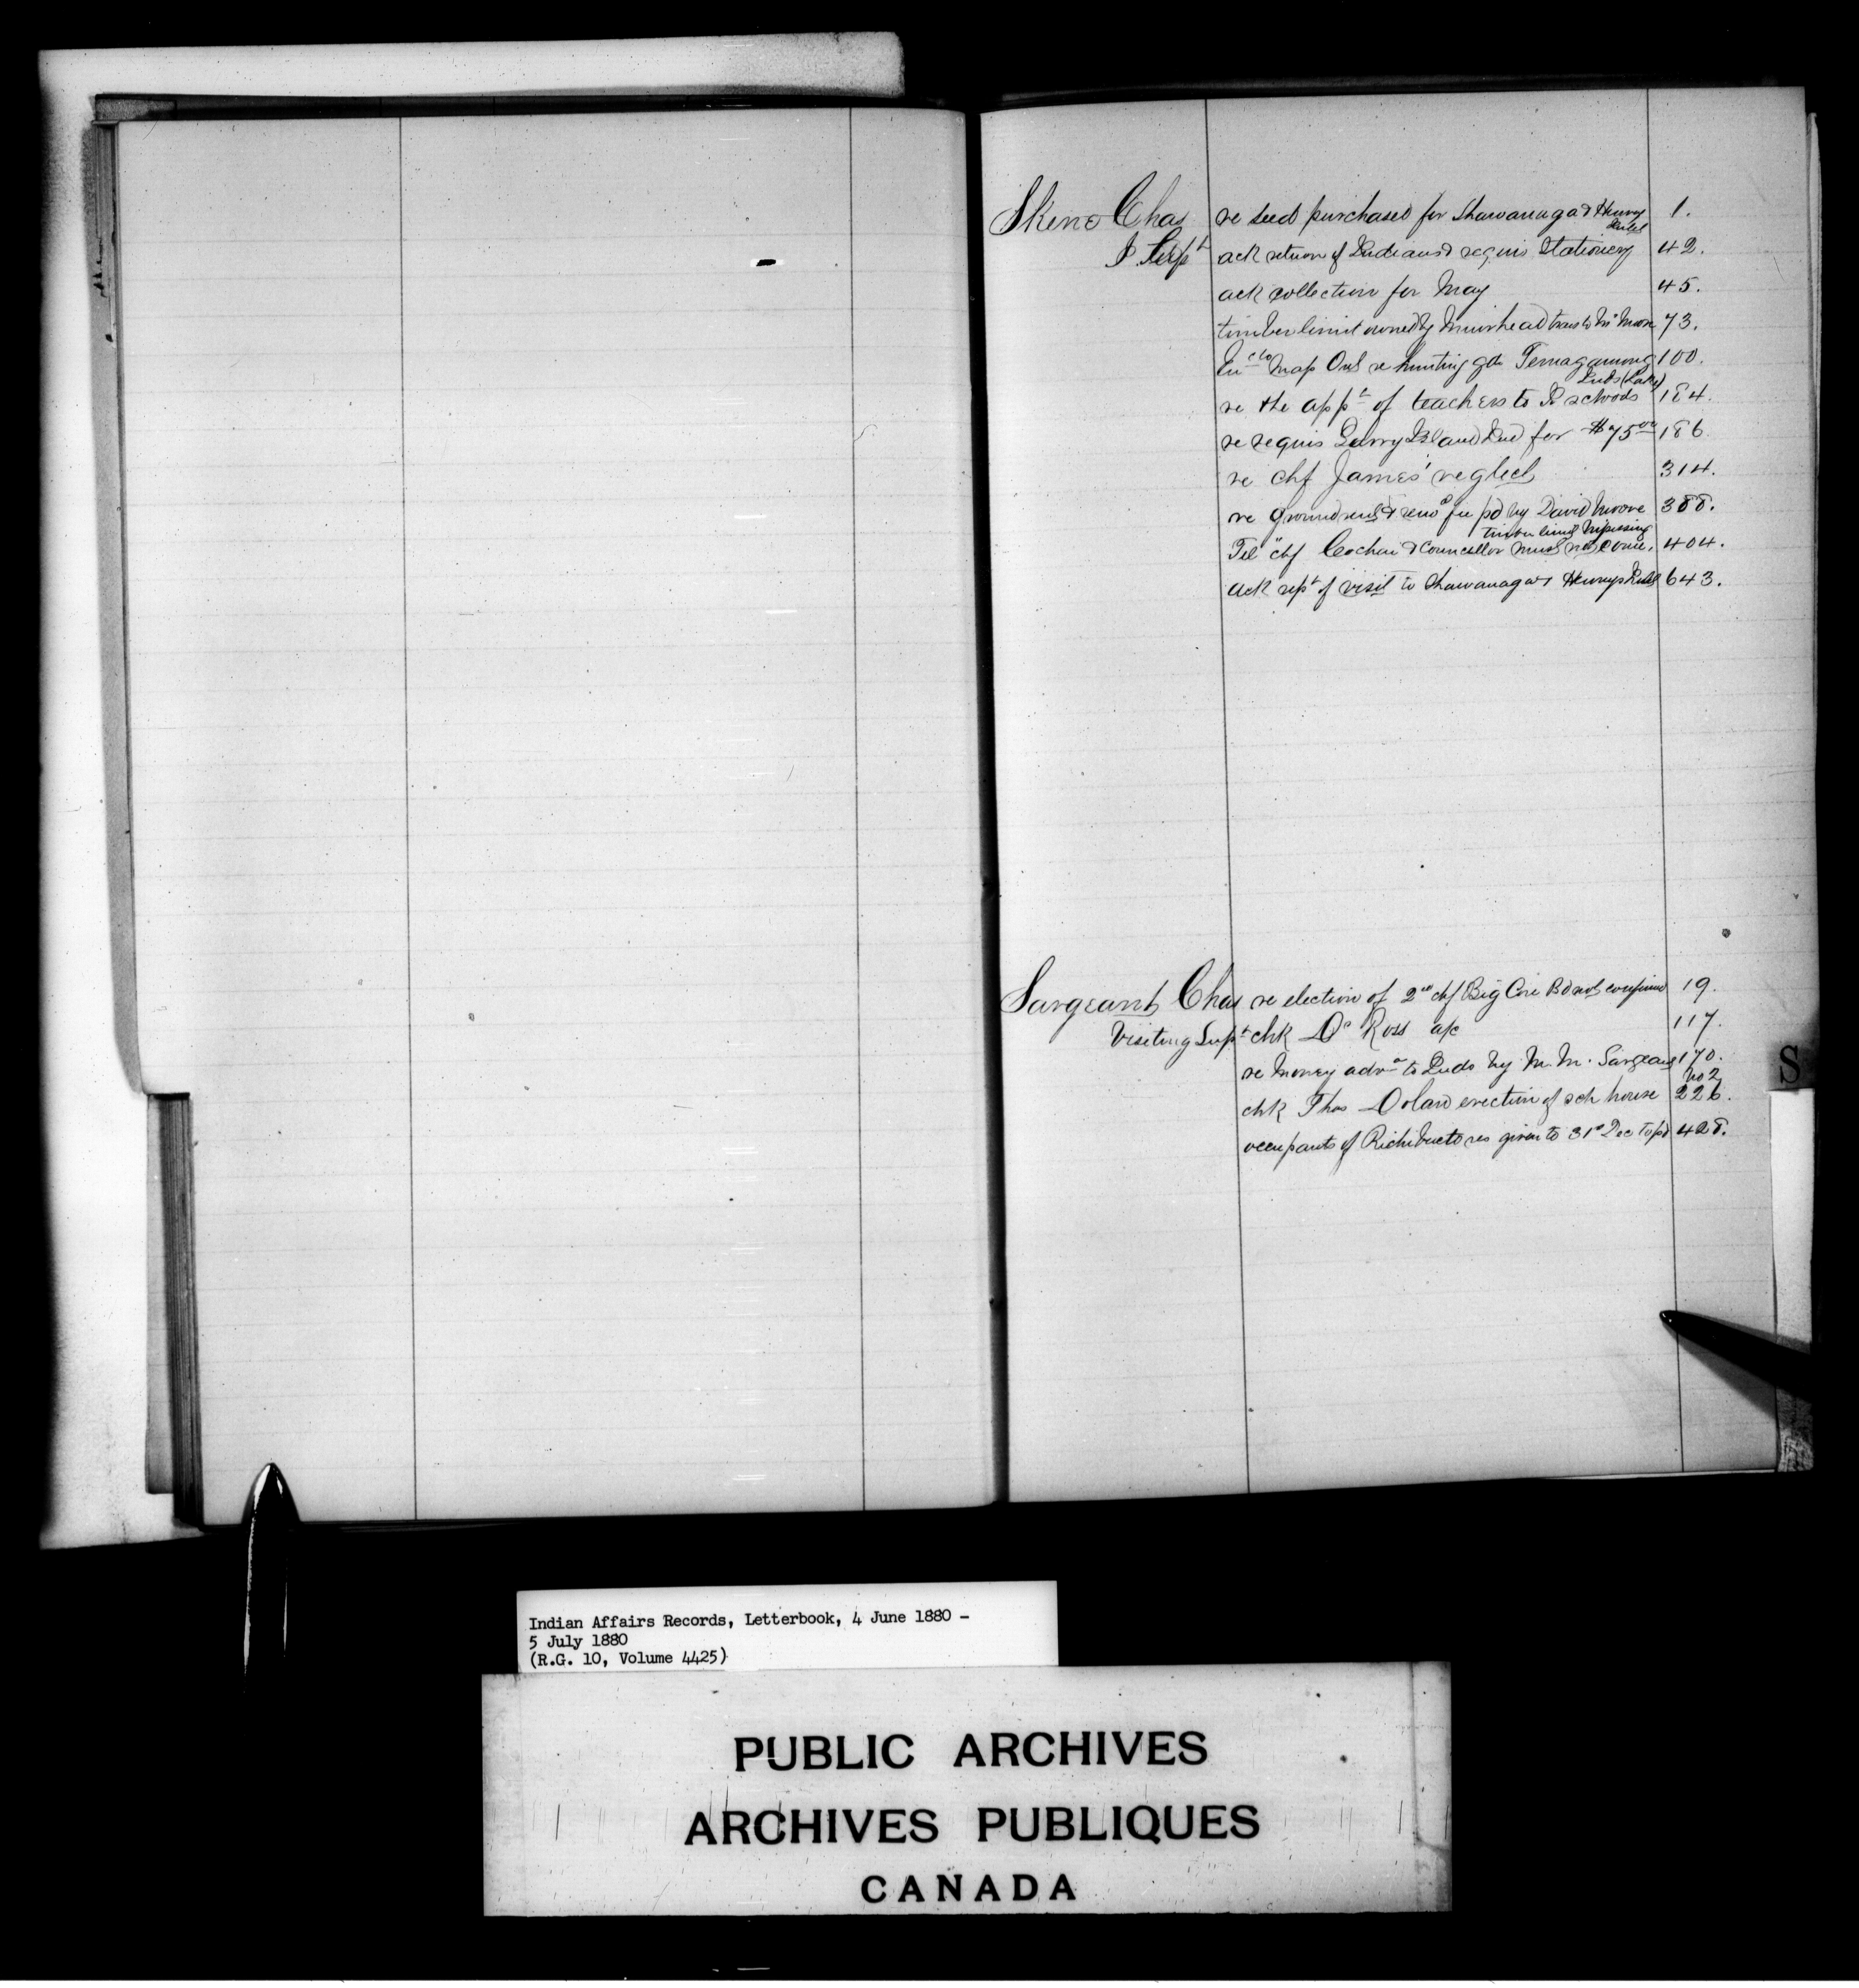 Skene Chas re seed purchased for Shawanaga & Henvey 1.
Inlet
I. Supt ack return of Indians & requis Stationery 42.
ack collection for May 45.
timber limit owned by Muirhead trans to Mr Moore 73.
map Ont re hunting gds Temagamong 100.
Inds (Lake)
re the appt of teachers to I schools 184.
re requis Parry Island Ind for $75 00 186.
re chf James' neglect 314.
re ground rent & renl fee pd by David Moore 388.
timber limit Nipissing
Tel "chf Cochai & Councillor must not come, 404.
ack rept of visit to Shawanaga & Henveys Inlet 643.
Sargeant Chas re election of 2nd chf Big Cove Bd not confirmed 19.
Visiting Supt chk Dr Ross a/c 117.
re Money advd to Inds by M. M. Sargeant 170.
No 2
chk Thos Dolan erection of sch house 226.
occupants of Richibucto res given to 31st Dec to pd 428.
S
Indian Affairs Records, Letterbook, 4 June 1880 -
5 July 1880
(R.G. 10, Volume 4425)
PUBLIC ARCHIVES
ARCHIVES PUBLIQUES
CANADA